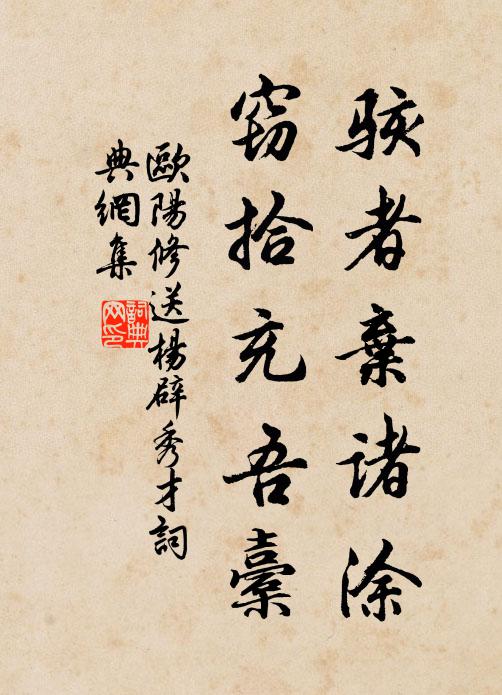 駭者棄諸涂
竊拾充吾橐
歐陽修送楊辟秀才詞
典網集
詞典网印